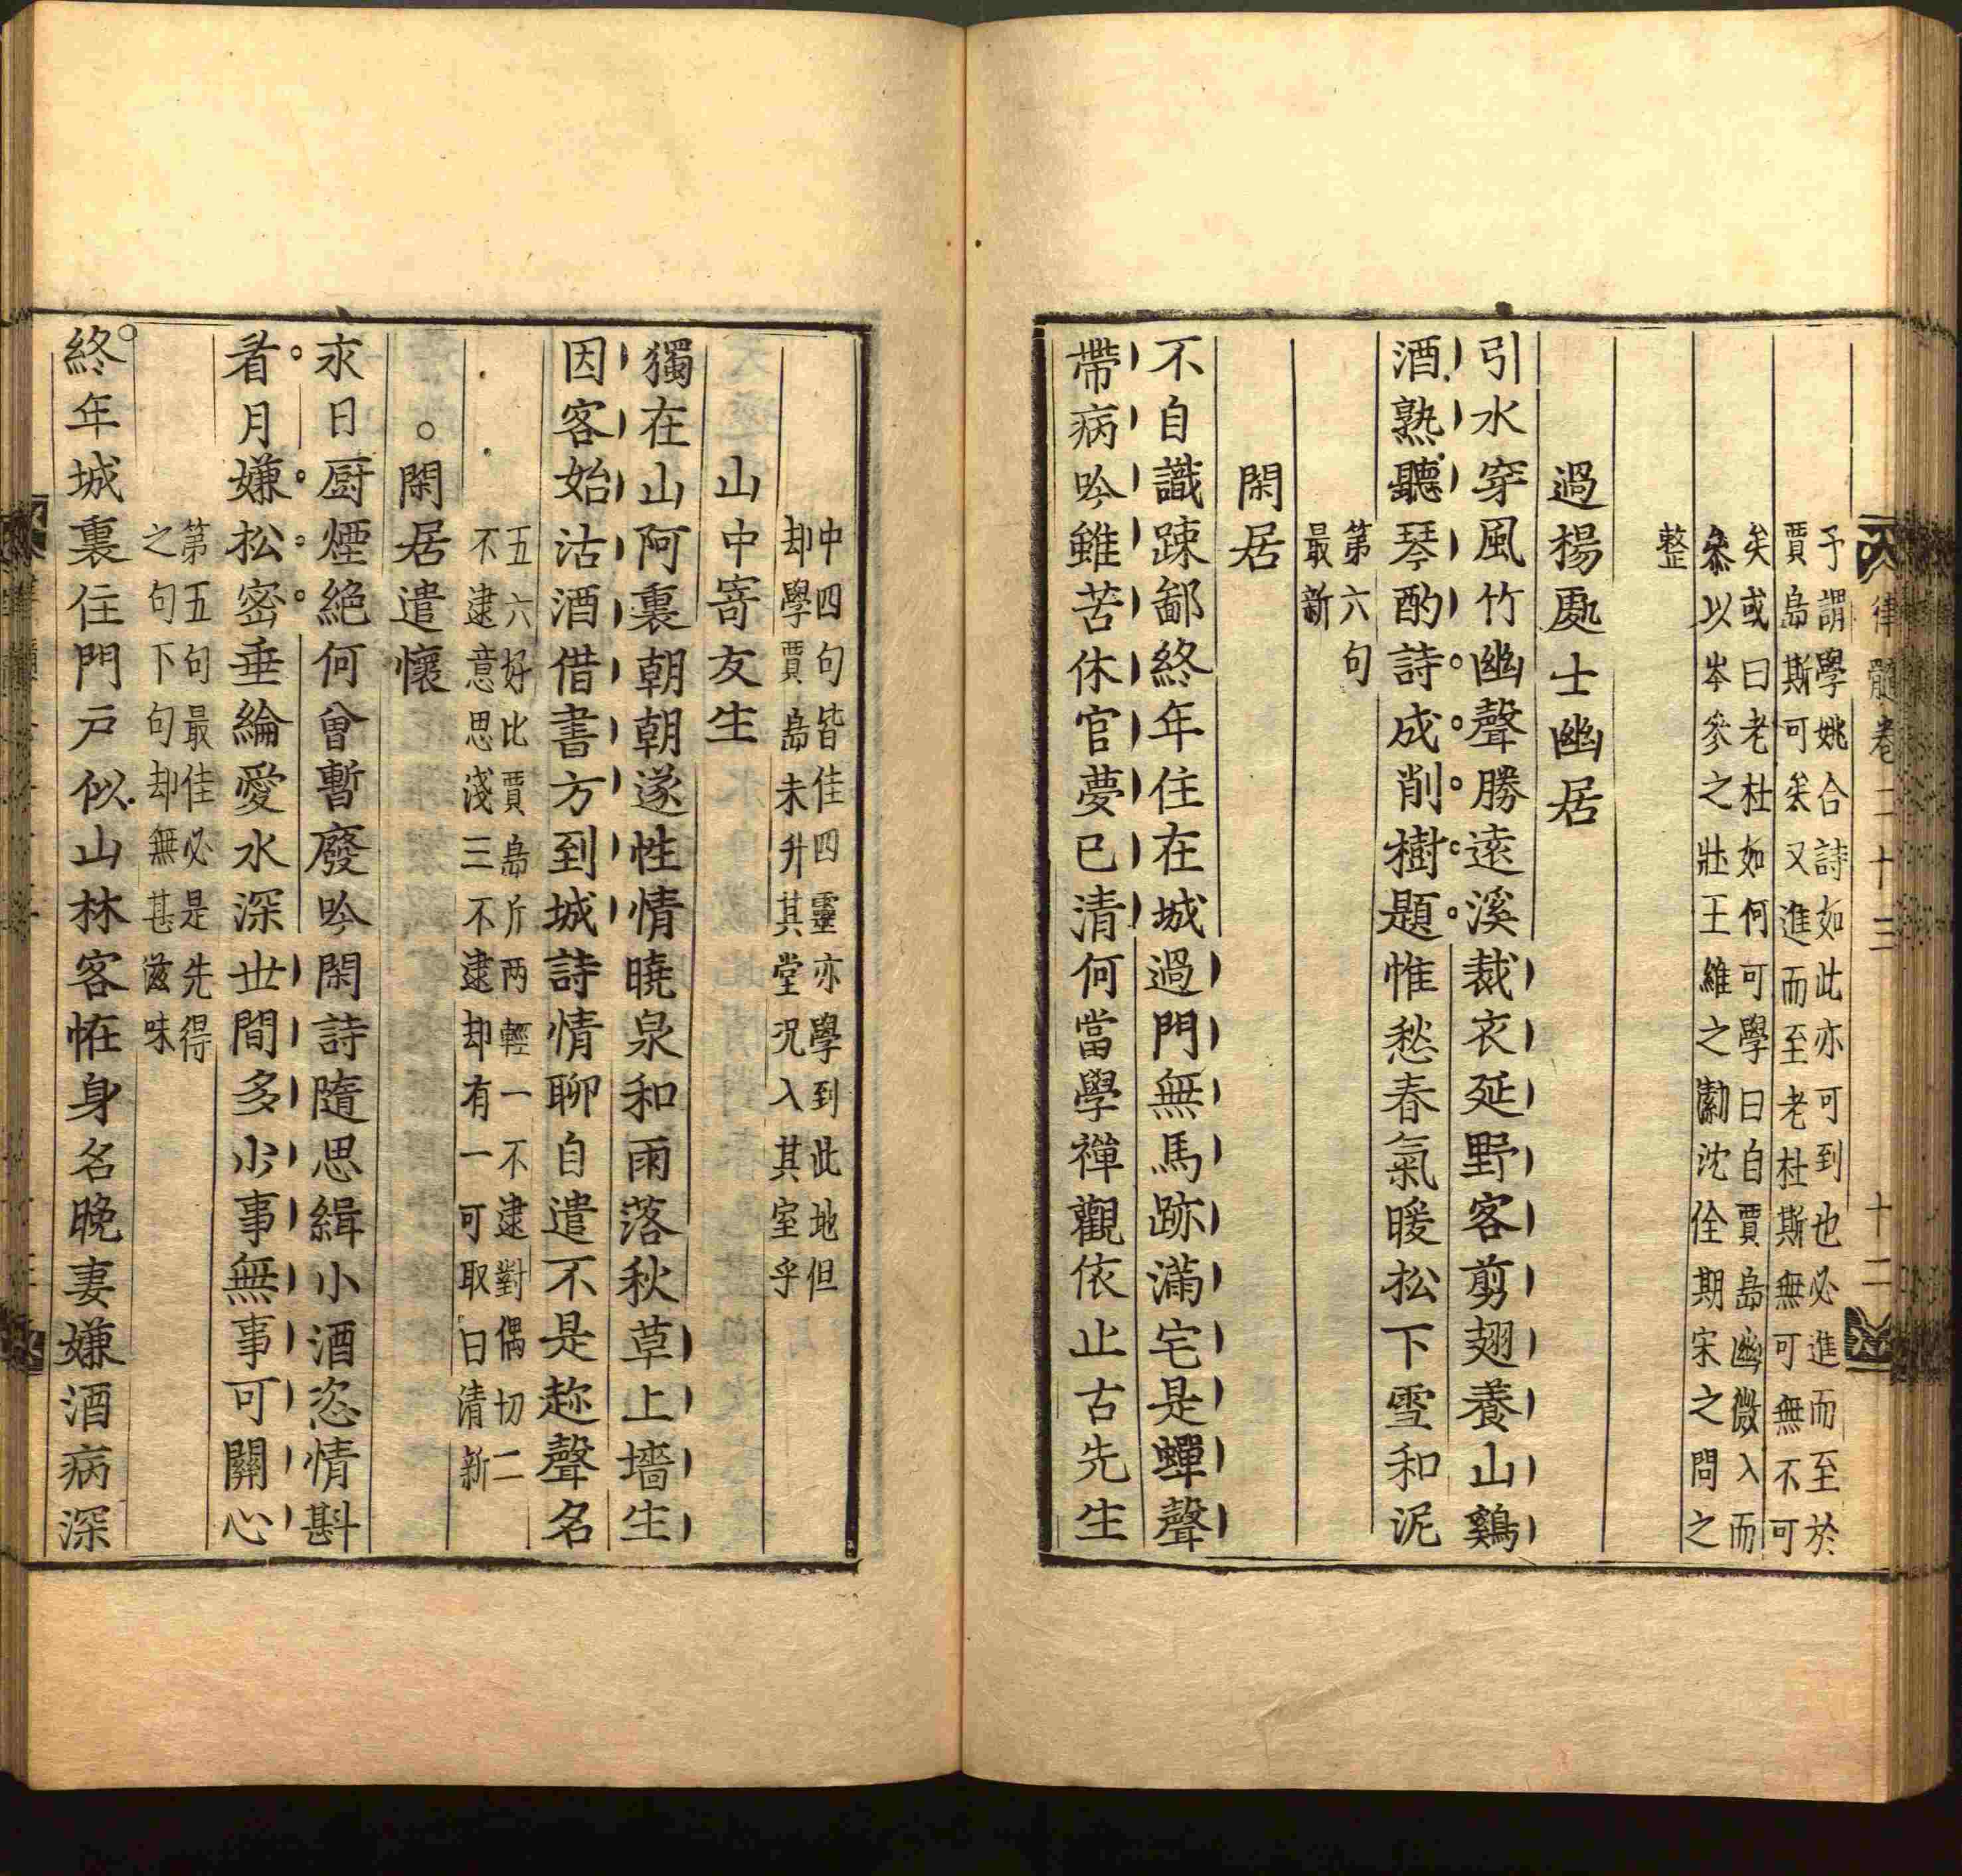 律髓卷二十三
十二
予謂學姚合詩如此亦可到也必進而至於
賈島斯可矣又進而至老杜斯無可無不可
矣或曰老杜如何可學曰自賈島幽微入而
叅以岑參之壯王維之㓗沈佺期宋之問之
整
過楊處士幽居
引水穿風竹幽聲勝遠溪裁衣延野客剪翅養山鷄
酒熟聽琴酌詩成削樹題惟愁春氣暖松下雪和泥
第六句
最新
閑居
不自識踈鄙終年住在城過門無馬跡滿宅是蟬聲
帶病吟雖苦休官夢已清何當學禪觀依止古先生
中四句皆佳四靈亦學到此地但
却學賈島未升其堂况入其室乎
山中寄友生
獨在山阿裏朝朝遂性情曉泉和雨落秋草上墻生
因客始沽酒借書方到城詩情聊自遣不是趂聲名
五六好比賈島斤两輕一不逮對偶切二
不逮意思淺三不逮却有一可取曰清新
○閑居遣懷
永日厨煙絶何曾暫廢吟閑詩隨思緝小酒恣情斟
看月嫌松密垂綸愛水深世間多少事無事可關心
第五句最佳必是先得
之句下句却無甚滋味
終年城裏住門戸似山林客恠身名晚妻嫌酒病深